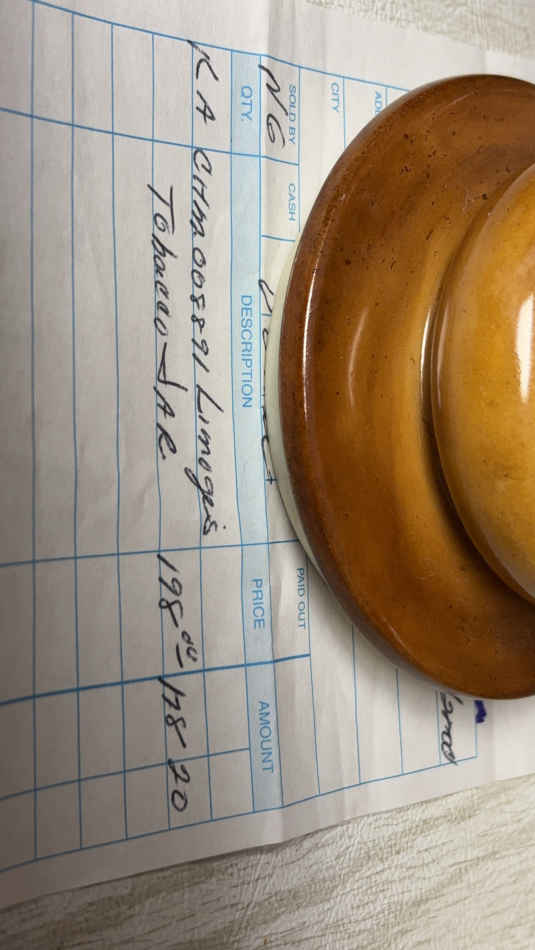 AD
CITY
SOLD BY CASH PAID OUT
NG
QTY. DESCRIPTION PRICE AMOUNT
KA CHM005891 Limoges
Tobacco JAR 198 00 178 20